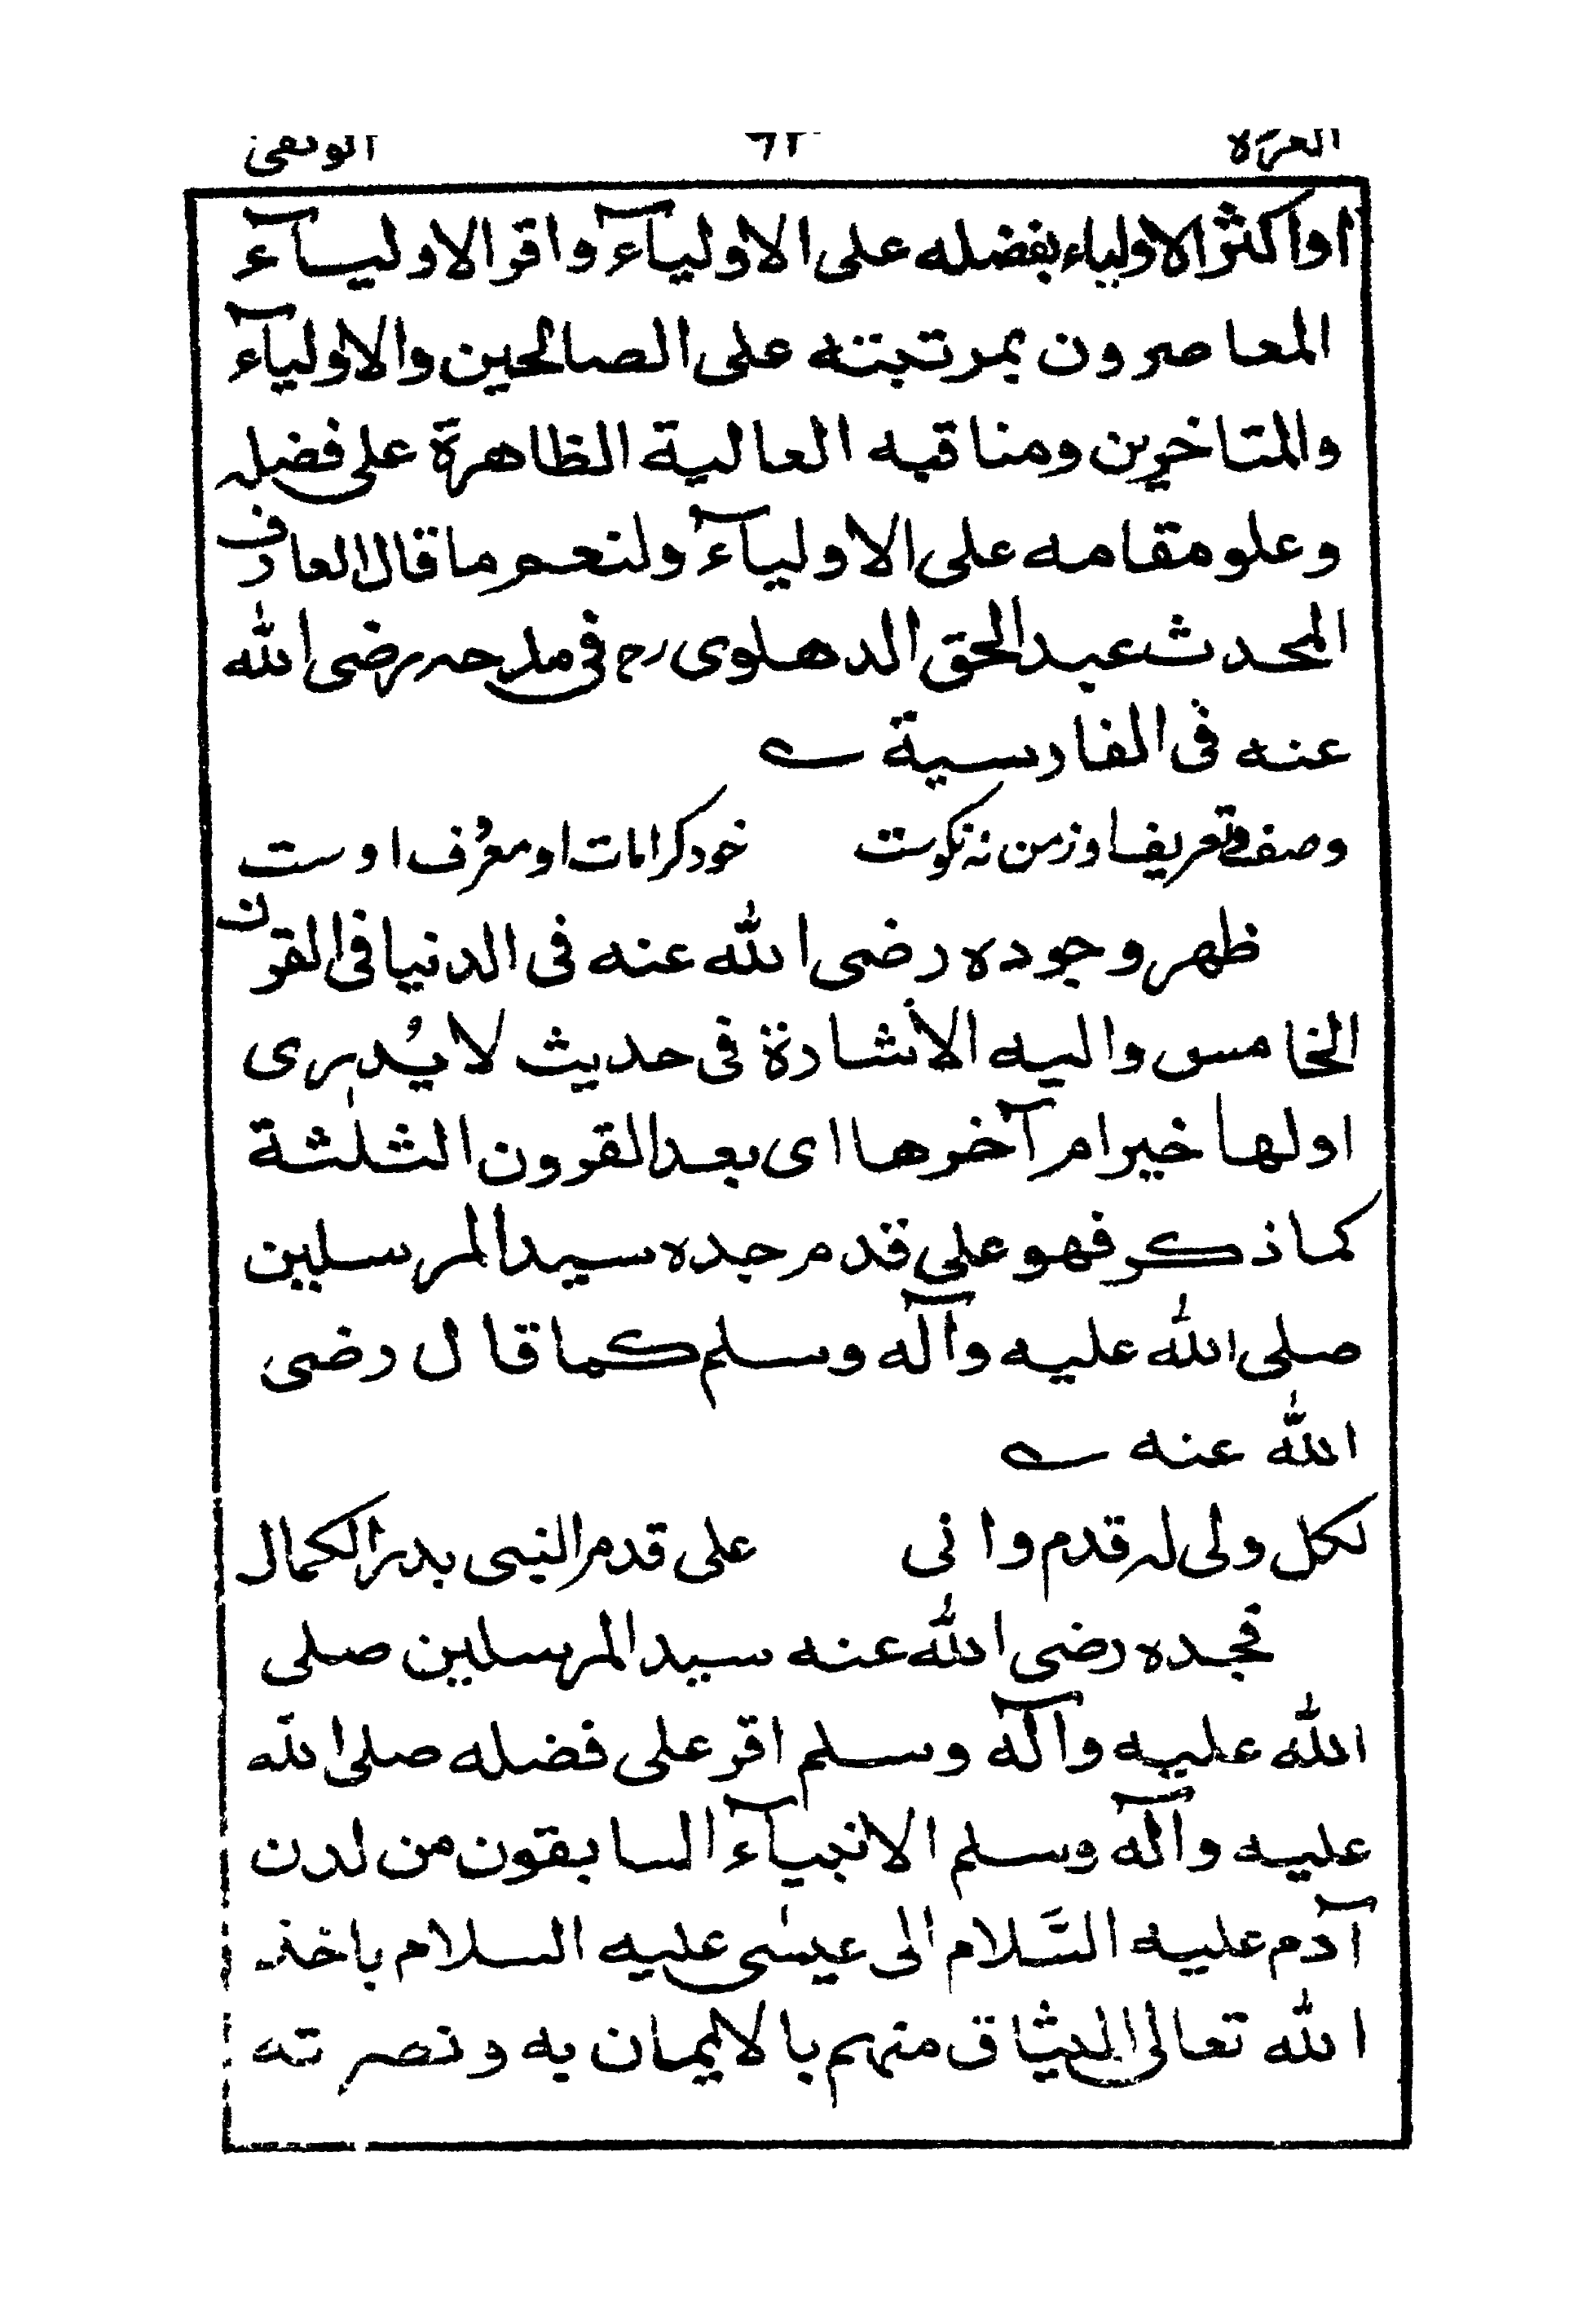 العروة الوثقى
او اكثر الاولياء بفضله على الاوليآء واقر الاوليسآء
المعاصرون بمرتبته على الصالحين والاوليآء
والمتاخرين ومناقبه العالية الظاهرة على فضله
وعلو مقامه على الاوليآء ولنعم ما قال العارف
المحدث عبد الحق الدهلوى رح فى مدحه رضى الله
عنه فى الفارسية ؎
وصف و تعريف او ز من نه نكوست خود كرامات او معرُف اوست
ظهر وجوده رضى الله عنه فى الدنيا فى القرن
الخامس واليه الاشارة فى حديث لا يُدرى
اولها خير ام آخرها اى بعد القرون الثلٰثة
كما ذكر فهو على قدم جده سيد المرسلين
صلى الله عليه وآله وسلم كما قال رضى
الله عنه ؎
لكل ولى له قدم وانى على قدم النبى بدر الكمال
فجده رضى الله عنه سيد المرسلين صلى
الله عليه وآله وسلم اقر على فضله صلى الله
عليه وآله وسلم الانبيآء السابقون من لدن
آدم عليه السَّلام الى عيسٰى عليه السلام باخذ
الله تعالى الميثاق منهم بالايمان به ونصرته